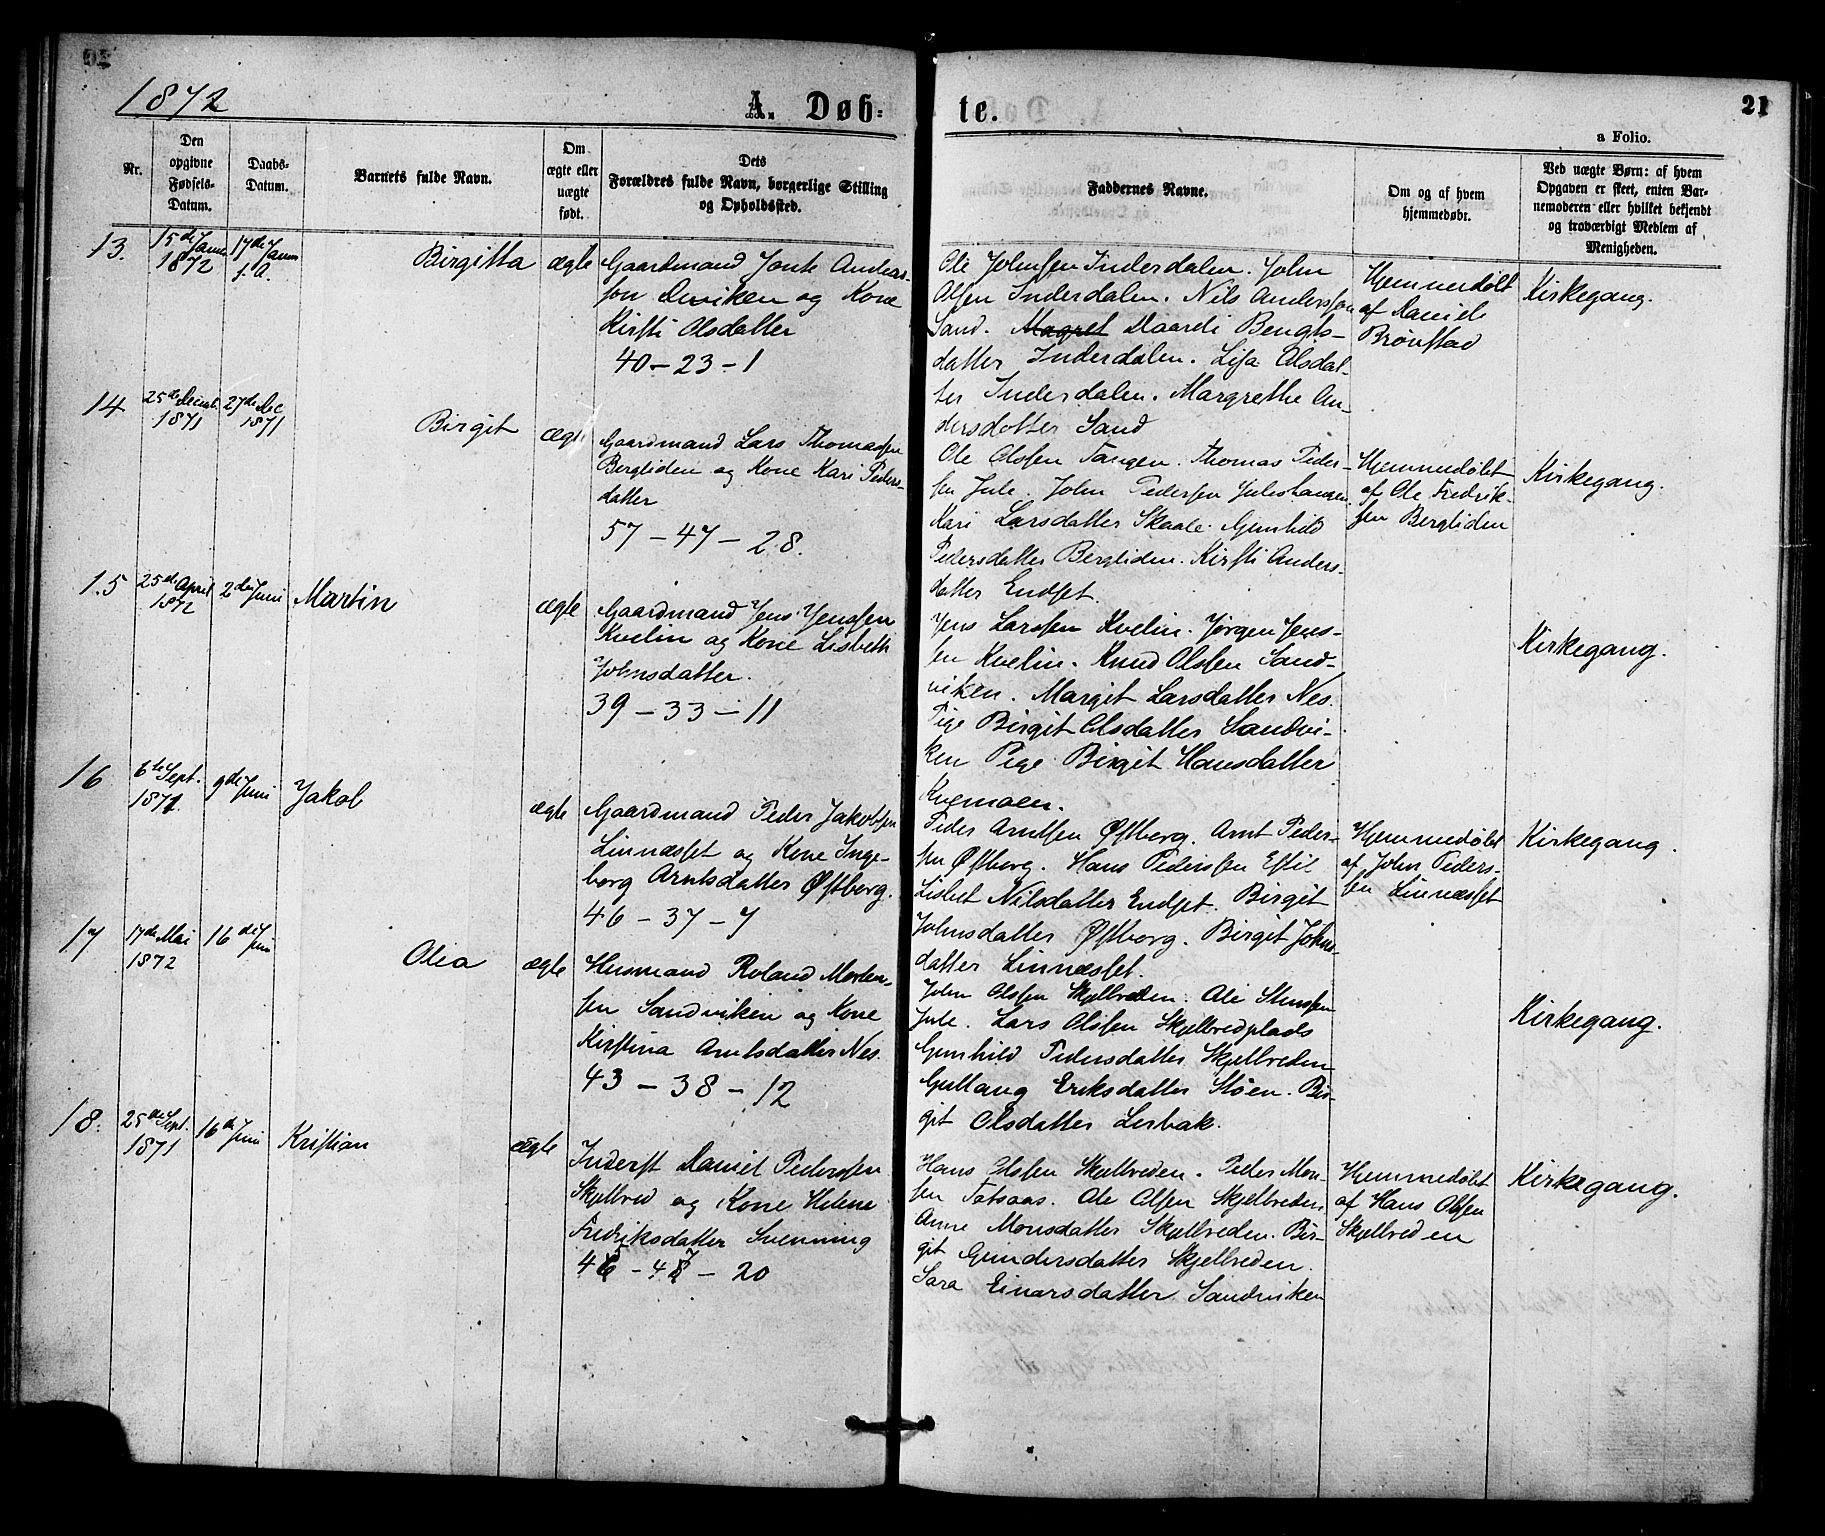 1872
A. Døb-
te.
21
a Folio.
Nr.
Den
opgivne
Fødsels-
Datum.
Daabs-
Datum.
Barnets fulde Navn.
Om
ægte eller
uægte
født.
Dets
Forældres fulde Navn, borgerlige Stilling
og Opholdssted.
Faddernes Navne.
Om og af hvem
hjemmedøbt.
Ved uægte Børn: af hvem
Opgaven er skeet, enten Bar-
nemoderen eller hvilket bekjendt
og troværdigt Medlem af
Menigheden.
13.
15de Janu
1872
17de Janu
f. A.
Birgitta
ægte
Gaardmand Jonte Anders-
sen Devikeen og Kone
Kirsti Olsdatter
40 - 23 - 1
Ole Johnsen Inderdalen. John
Olsen Inderdalen. Nils Anderssen
Sand. Magret Daardi Bengts-
datter Inderdalen. Lisa Olsdat-
ter Inderdalen. Margrethe An-
dersdatter Sand
Hjemmedøbt
af Daniel
Brønstad
Kirkegang.
14
25de Decemb.
1871
27de Dec
1871
Birgit
ægte
Gaardmand Lars Thomassen
Bergliden og Kone Kari Peders-
datter
57 - 47 - 28.
Ole Olssen Tangen. Thomas Peder-
sen Jule. John Pedersen Juleshaugen
Kari Larsdatter Skaale. Gunhild
Pedersdatter Bergliden. Kirsti Anders-
datter Endset.
Hjemmedøbt
af Ole Fredrik-
sen Bergliden
Kirkegang.
15
25de April
1872
2de Juni
Martin
ægte
Gaardmand Jens Jenssen
Kvelin og Kone Lisbeth
Johnsdatter.
39 - 33 - 11
Jens Larssen Kvelin. Jørgen Jens-
sen Kvelin. Knud Olssen Sand-
viken. Margit Larsdatter Nes.
Pige Birgit Olsdatter Sandvi-
ken Pige Birgit Hansdatter
Kvemoen.
Kirkegang.
16
6te Sept.
1871.
9de Juni
Jakob
ægte
Gaardmand Peder Jakobsen
Linnæsset og Kone Inge-
borg Arntsdatter Østborg.
46 - 37 - 7
Peder Arntsen Østborg. Arnt Peder-
sen Østborg. Hans Pederssen Estil
Lisbet Nilsdatter Endset. Birgit
Johnsdatter Østborg. Birgit Johns-
datter Linnæsset.
Hjemmedøbt
af John Peders-
sen Linnæsset
Kirkegang.
17
17de Mai
1872
16de Juni
Olea
ægte
Husmand Roland Morten-
sen Sandviken og Kone
Kirstina Arntsdatter Nes.
43 - 38 - 12
John Olssen Skjelbreden. Ole Stenssen
Jule. Lars Olssen Skjelbredplads
Gunhild Pedersdatter Skjelbreden
Gullaug Eriksdatter Støen. Bir-
git Olsdatter Lerbak.
Kirkegang.
18.
25de Sept.
1871
16de Juni
Kristian
ægte
Inderst Daniel Pederssen
Skjelbred og Kone Helena
Fredriksdatter Svenning
46 - 47 - 20
Hans Olssen Skjelbreden. Peder Mon-
sen Totsaas. Ole Olsen Skjelbreden.
Anne Monsdatter Skjelbreden. Bir-
git Gundersdatter Skjelbreden.
Sara Einarsdatter Sandviken
Hjemmedøbt
af Hans Olssen
Skjelbreden
Kirkegang.